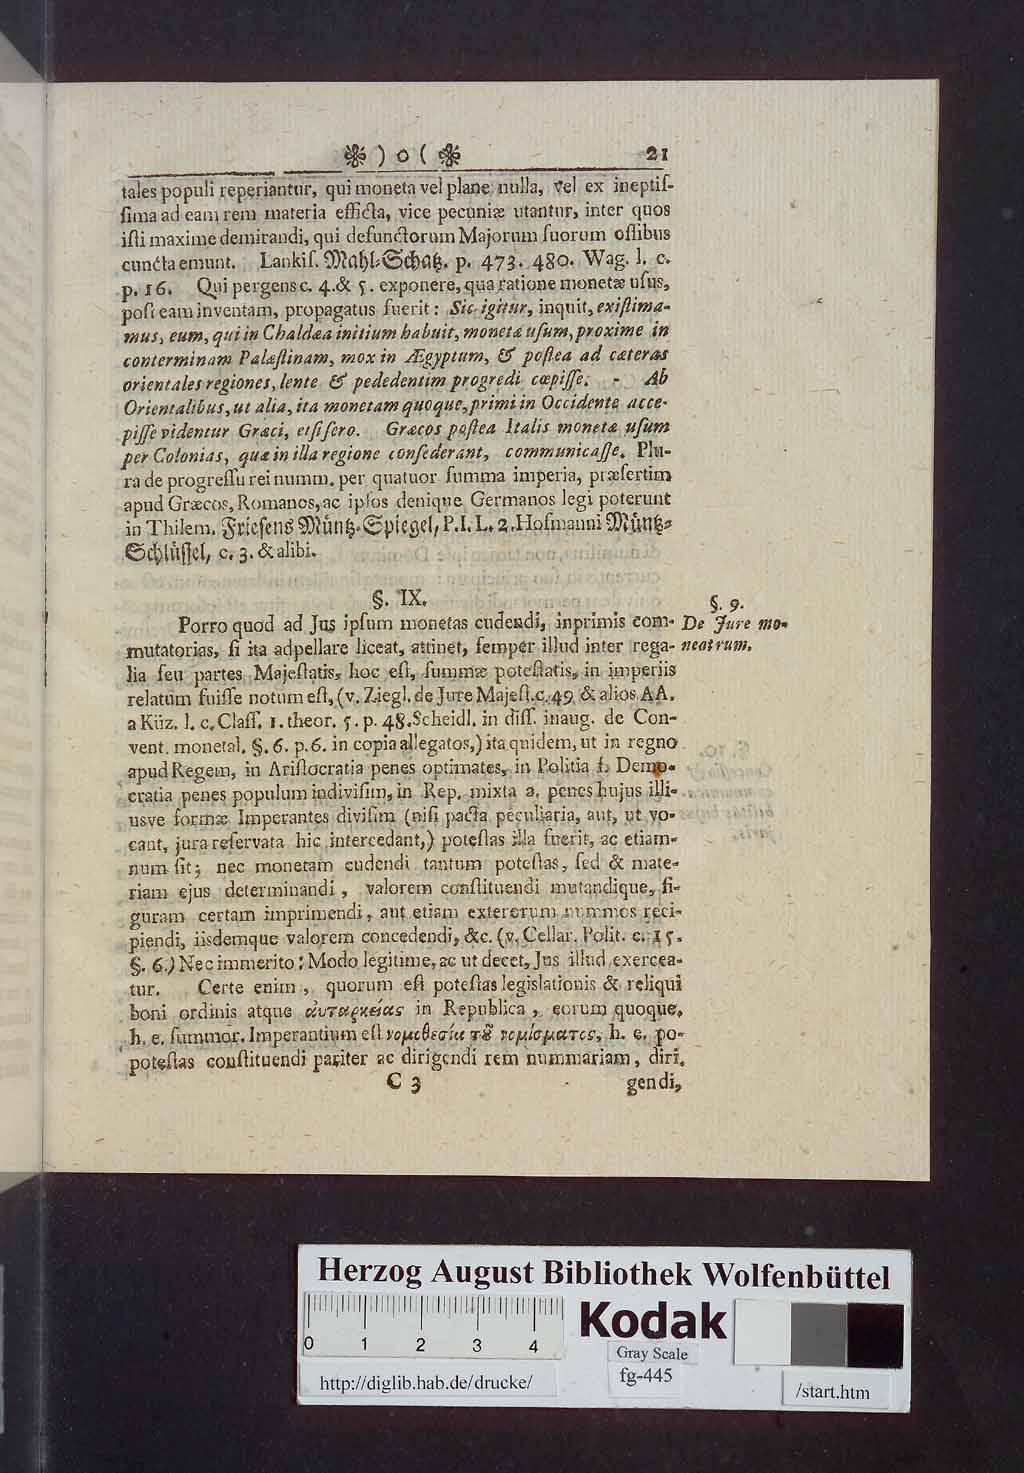 ) o ( 21
tales populi reperiantur, qui moneta vel plane nulla, vel ex ineptiſ-
ſima ad eam rem materia efficta, vice pecuniæ utantur, inter quos
iſti maxime demirandi, qui defunctorum Majorum ſuorum oſſibus
cuncta emunt. Lankiſ. Mahl-Schatz. p. 473. 480. Wag. l. c.
p. 16. Qui pergens c. 4. & 5. exponere, qua ratione monetæ uſus,
poſt eam inventam, propagatus fuerit: Sic igitur, inquit, exiſtima-
mus, eum, qui in Chaldæa initium habuit, monetæ uſum, proxime in
conterminam Palæſtinam, mox in Ægyptum, & poſtea ad cæteras
orientales regiones, lente & pededentim progredi cœpiſſe. - Ab
Orientalibus, ut alia, ita monetam quoque, primi in Occidente acce-
piſſe videntur Græci, etſi ſero. Græcos poſtea Italis monetæ uſum
per Colonias, quæ in illa regione conſederant, communicaſſe. Plu-
ra de progreſſu rei numm. per quatuor ſumma imperia, præſertim
apud Græcos, Romanos, ac ipſos denique Germanos legi poterunt
in Thilem. Frieſens Müntz-Spiegel, P. I. L. 2. Hofmanni Müntz-
Schlüſſel, c. 3. & alibi.
§. IX.
§. 9.
Porro quod ad Jus ipſum monetas cudendi, inprimis com-
De Jure mo-
mutatorias, ſi ita adpellare liceat, attinet, ſemper illud inter rega-
neatrum.
lia ſeu partes Majeſtatis, hoc eſt, ſummæ poteſtatis, in imperiis
relatum fuiſſe notum eſt, (v. Ziegl. de Jure Majeſt. c. 49 & alios AA.
a Küz. l. c. Claſſ. 1. theor. 5. p. 48. Scheidl. in diſſ. inaug. de Con-
vent. monetal. §. 6. p. 6. in copia allegatos,) ita quidem, ut in regno
apud Regem, in Ariſtocratia penes optimates, in Politia ſ. Demo-
cratia penes populum indiviſim, in Rep. mixta a. penes hujus illi-
usve formæ Imperantes diviſim (niſi pacta peculiaria, aut, ut vo-
cant, jura reſervata hic intercedant,) poteſtas illa fuerit, ac etiam-
num ſit; nec monetam cudendi tantum poteſtas, ſed & mate-
riam ejus determinandi, valorem conſtituendi mutandique, fi-
guram certam imprimendi, aut etiam exterorum nummos reci-
piendi, iisdemque valorem concedendi, &c. (v. Cellar. Polit. c. 15.
§. 6.) Nec immerito: Modo legitime, ac ut decet, Jus illud exercea-
tur. Certe enim, quorum eſt poteſtas legislationis & reliqui
boni ordinis atque ἀυταρκείας in Republica, eorum quoque,
h. e. ſummor. Imperantium eſt νομοθεσία τȣ͂ νομίσματος, h. e. po-
poteſtas conſtituendi pariter ac dirigendi rem nummariam, diri.
C 3 gendi,
Herzog August Bibliothek Wolfenbüttel
0 1 2 3 4
Kodak
Gray Scale
fg-445
http://diglib.hab.de/drucke/
/start.htm